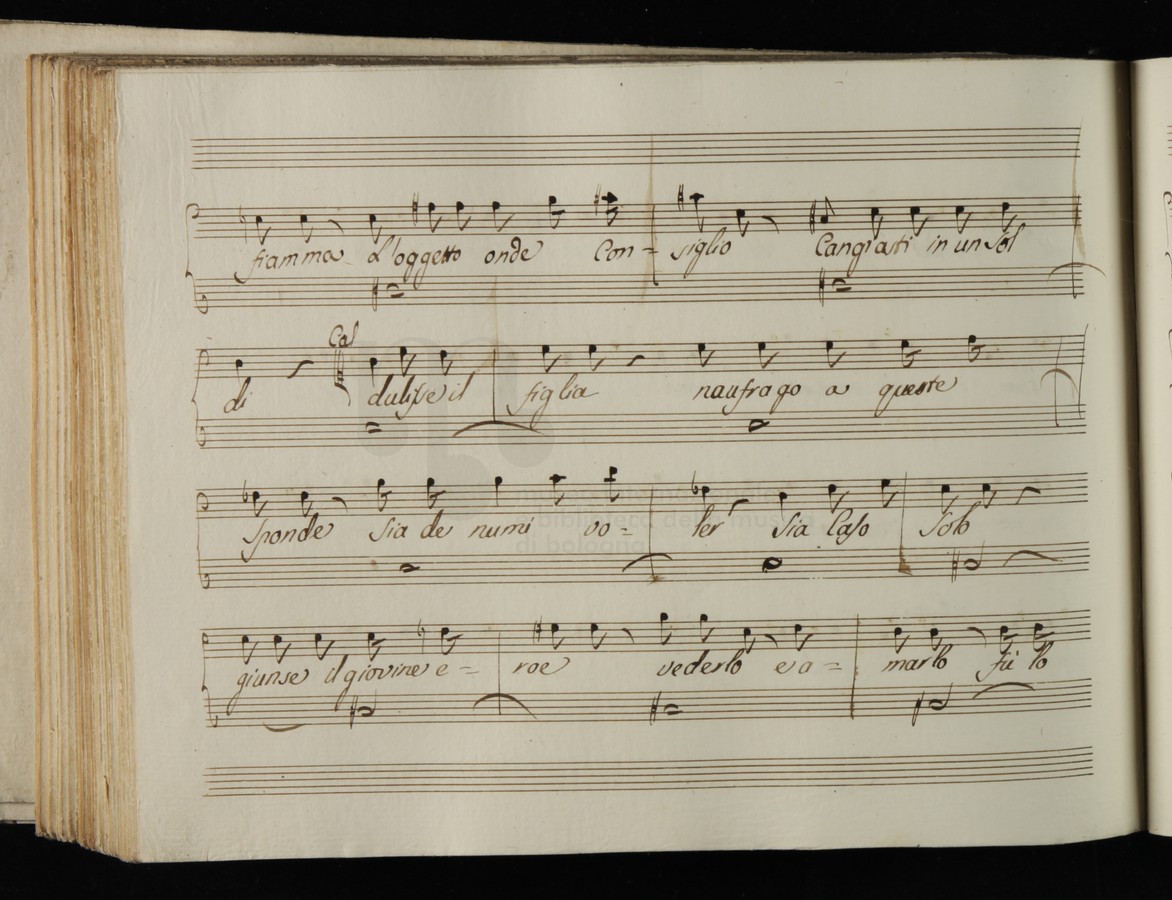 fiamma l'oggetto onde Con = siglio Cangiasti in un Sol
Cal
di d'ulisse il figlia naufrago a queste
Sponde Sia de numi vo = ler Sia Caso Solo
giunse il giovine e = roe vederlo e a = marlo fù lo
museo internazionale
e biblioteca della musica
di bologna